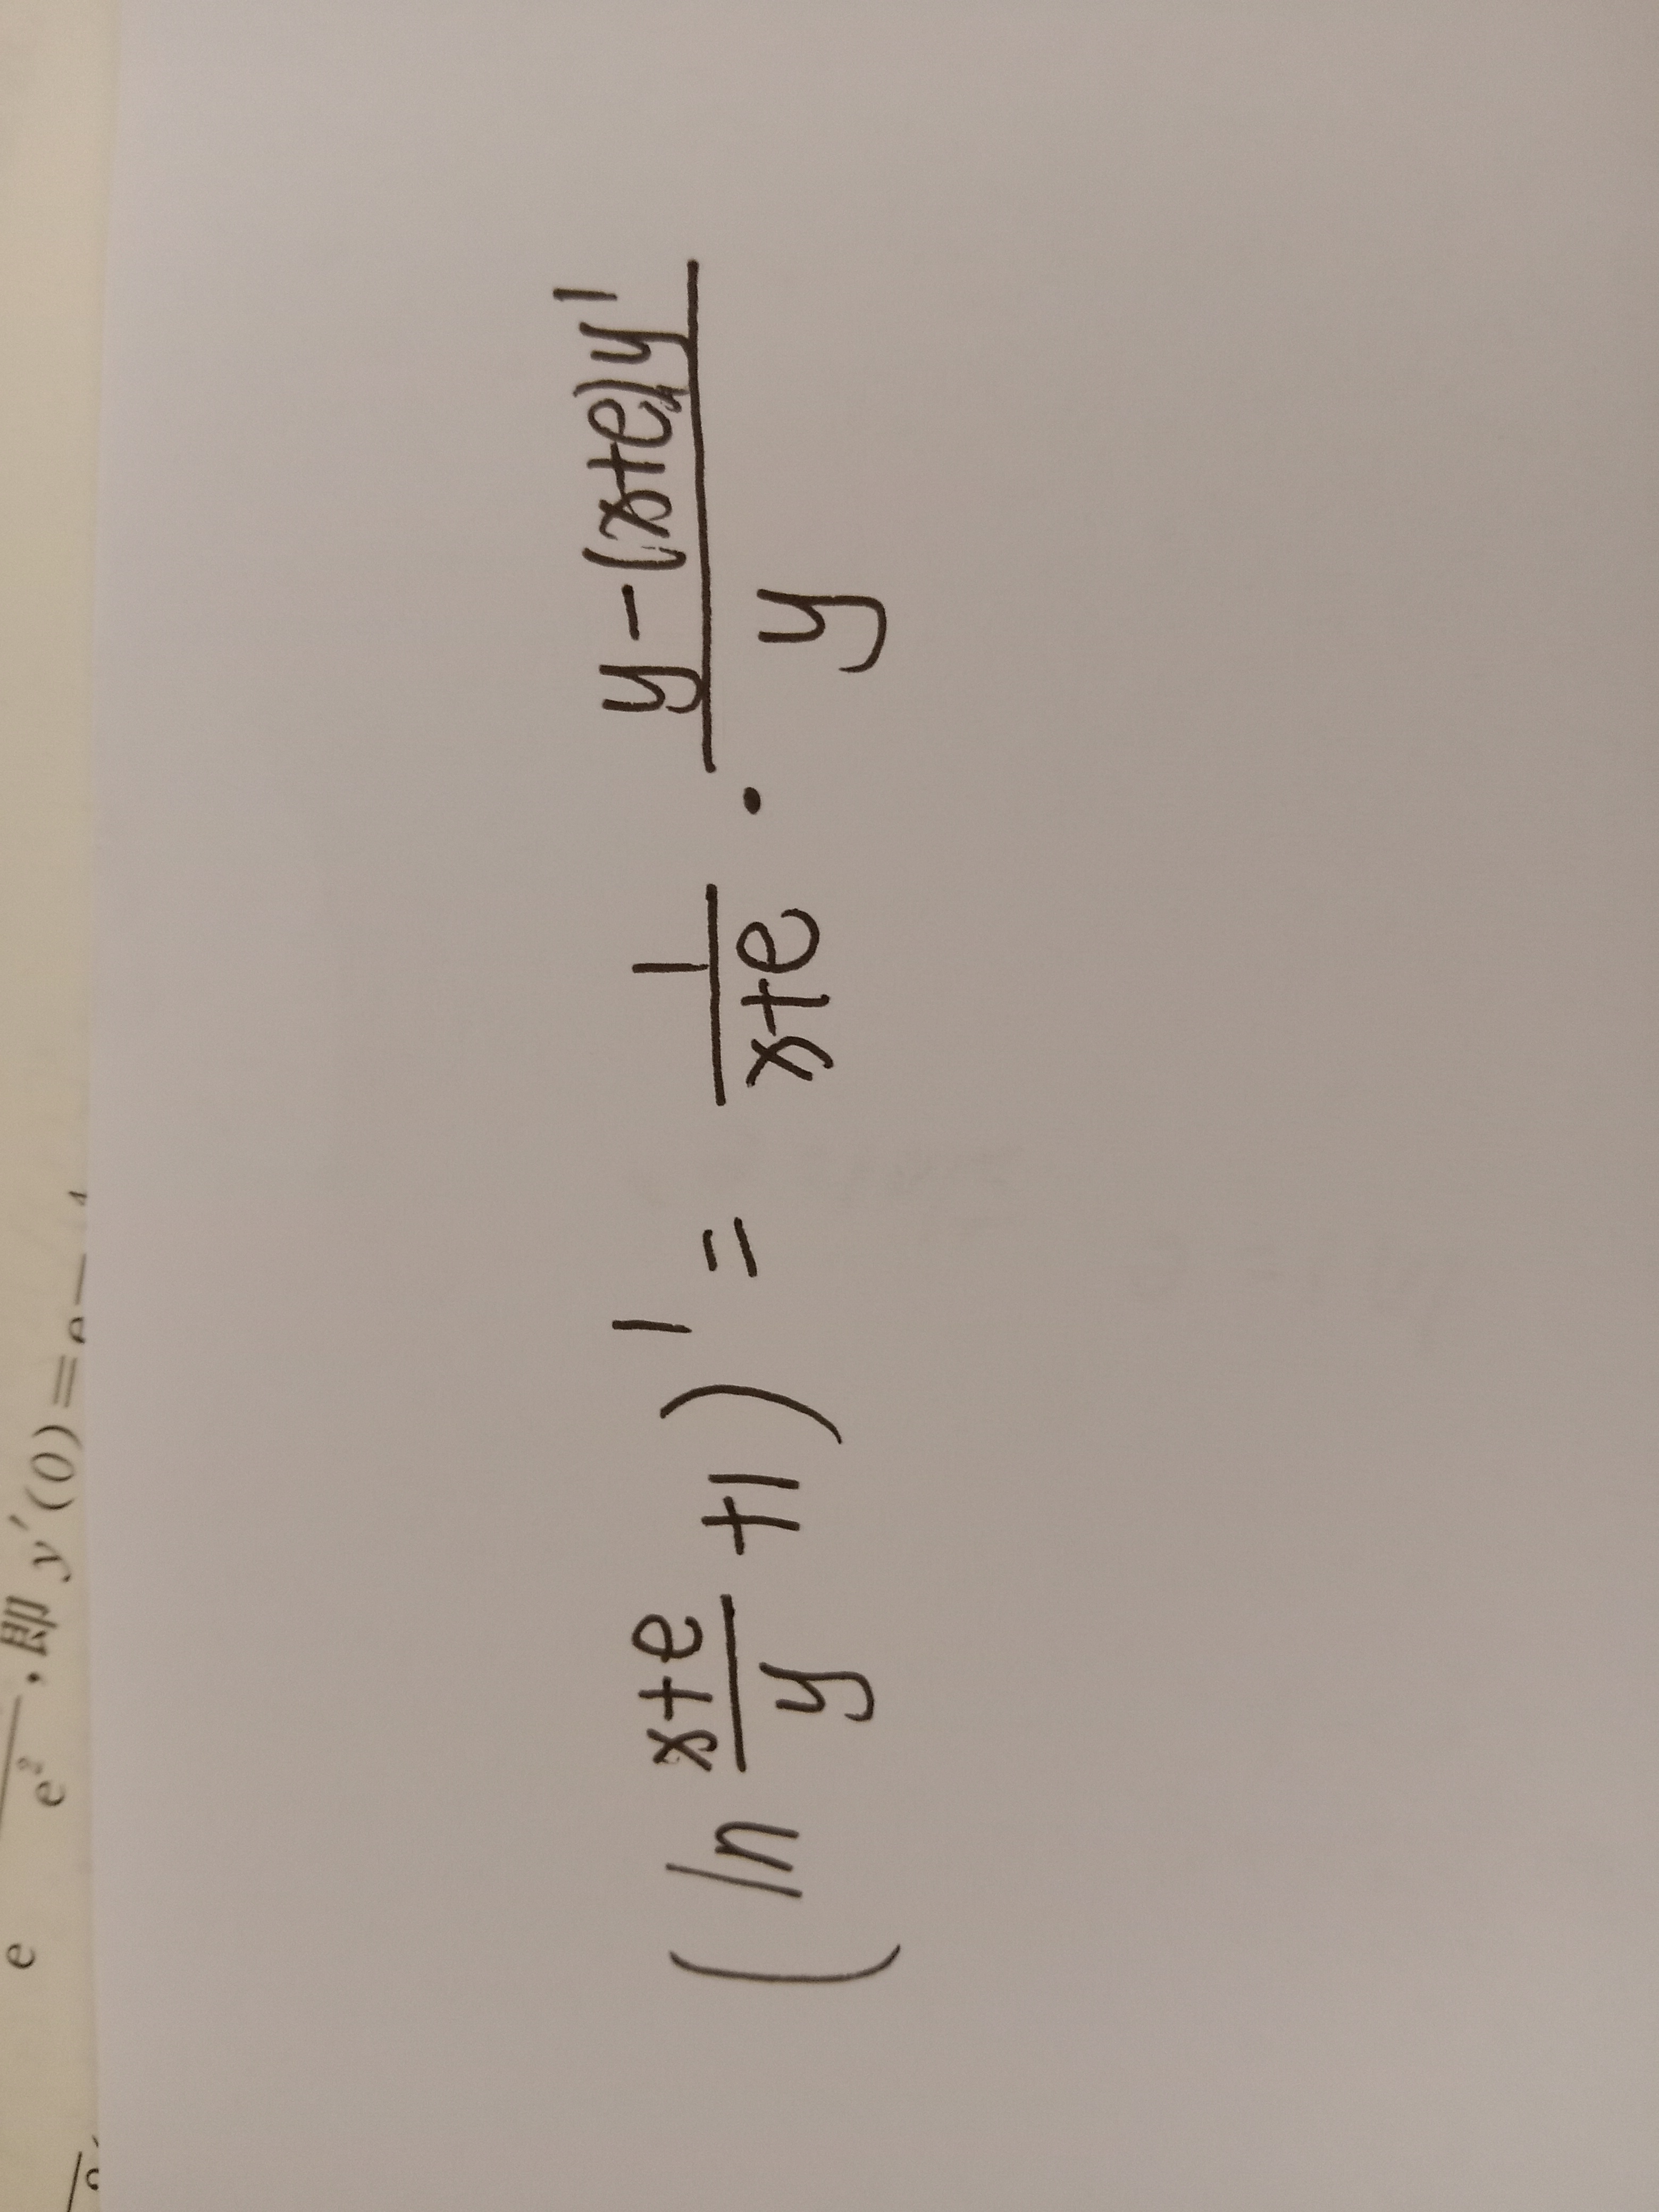 e
e²
, 即 y′(0)=e
(ln (x+e)/y +1)' = 1/(x+e) · (y-(x+e)y')/y